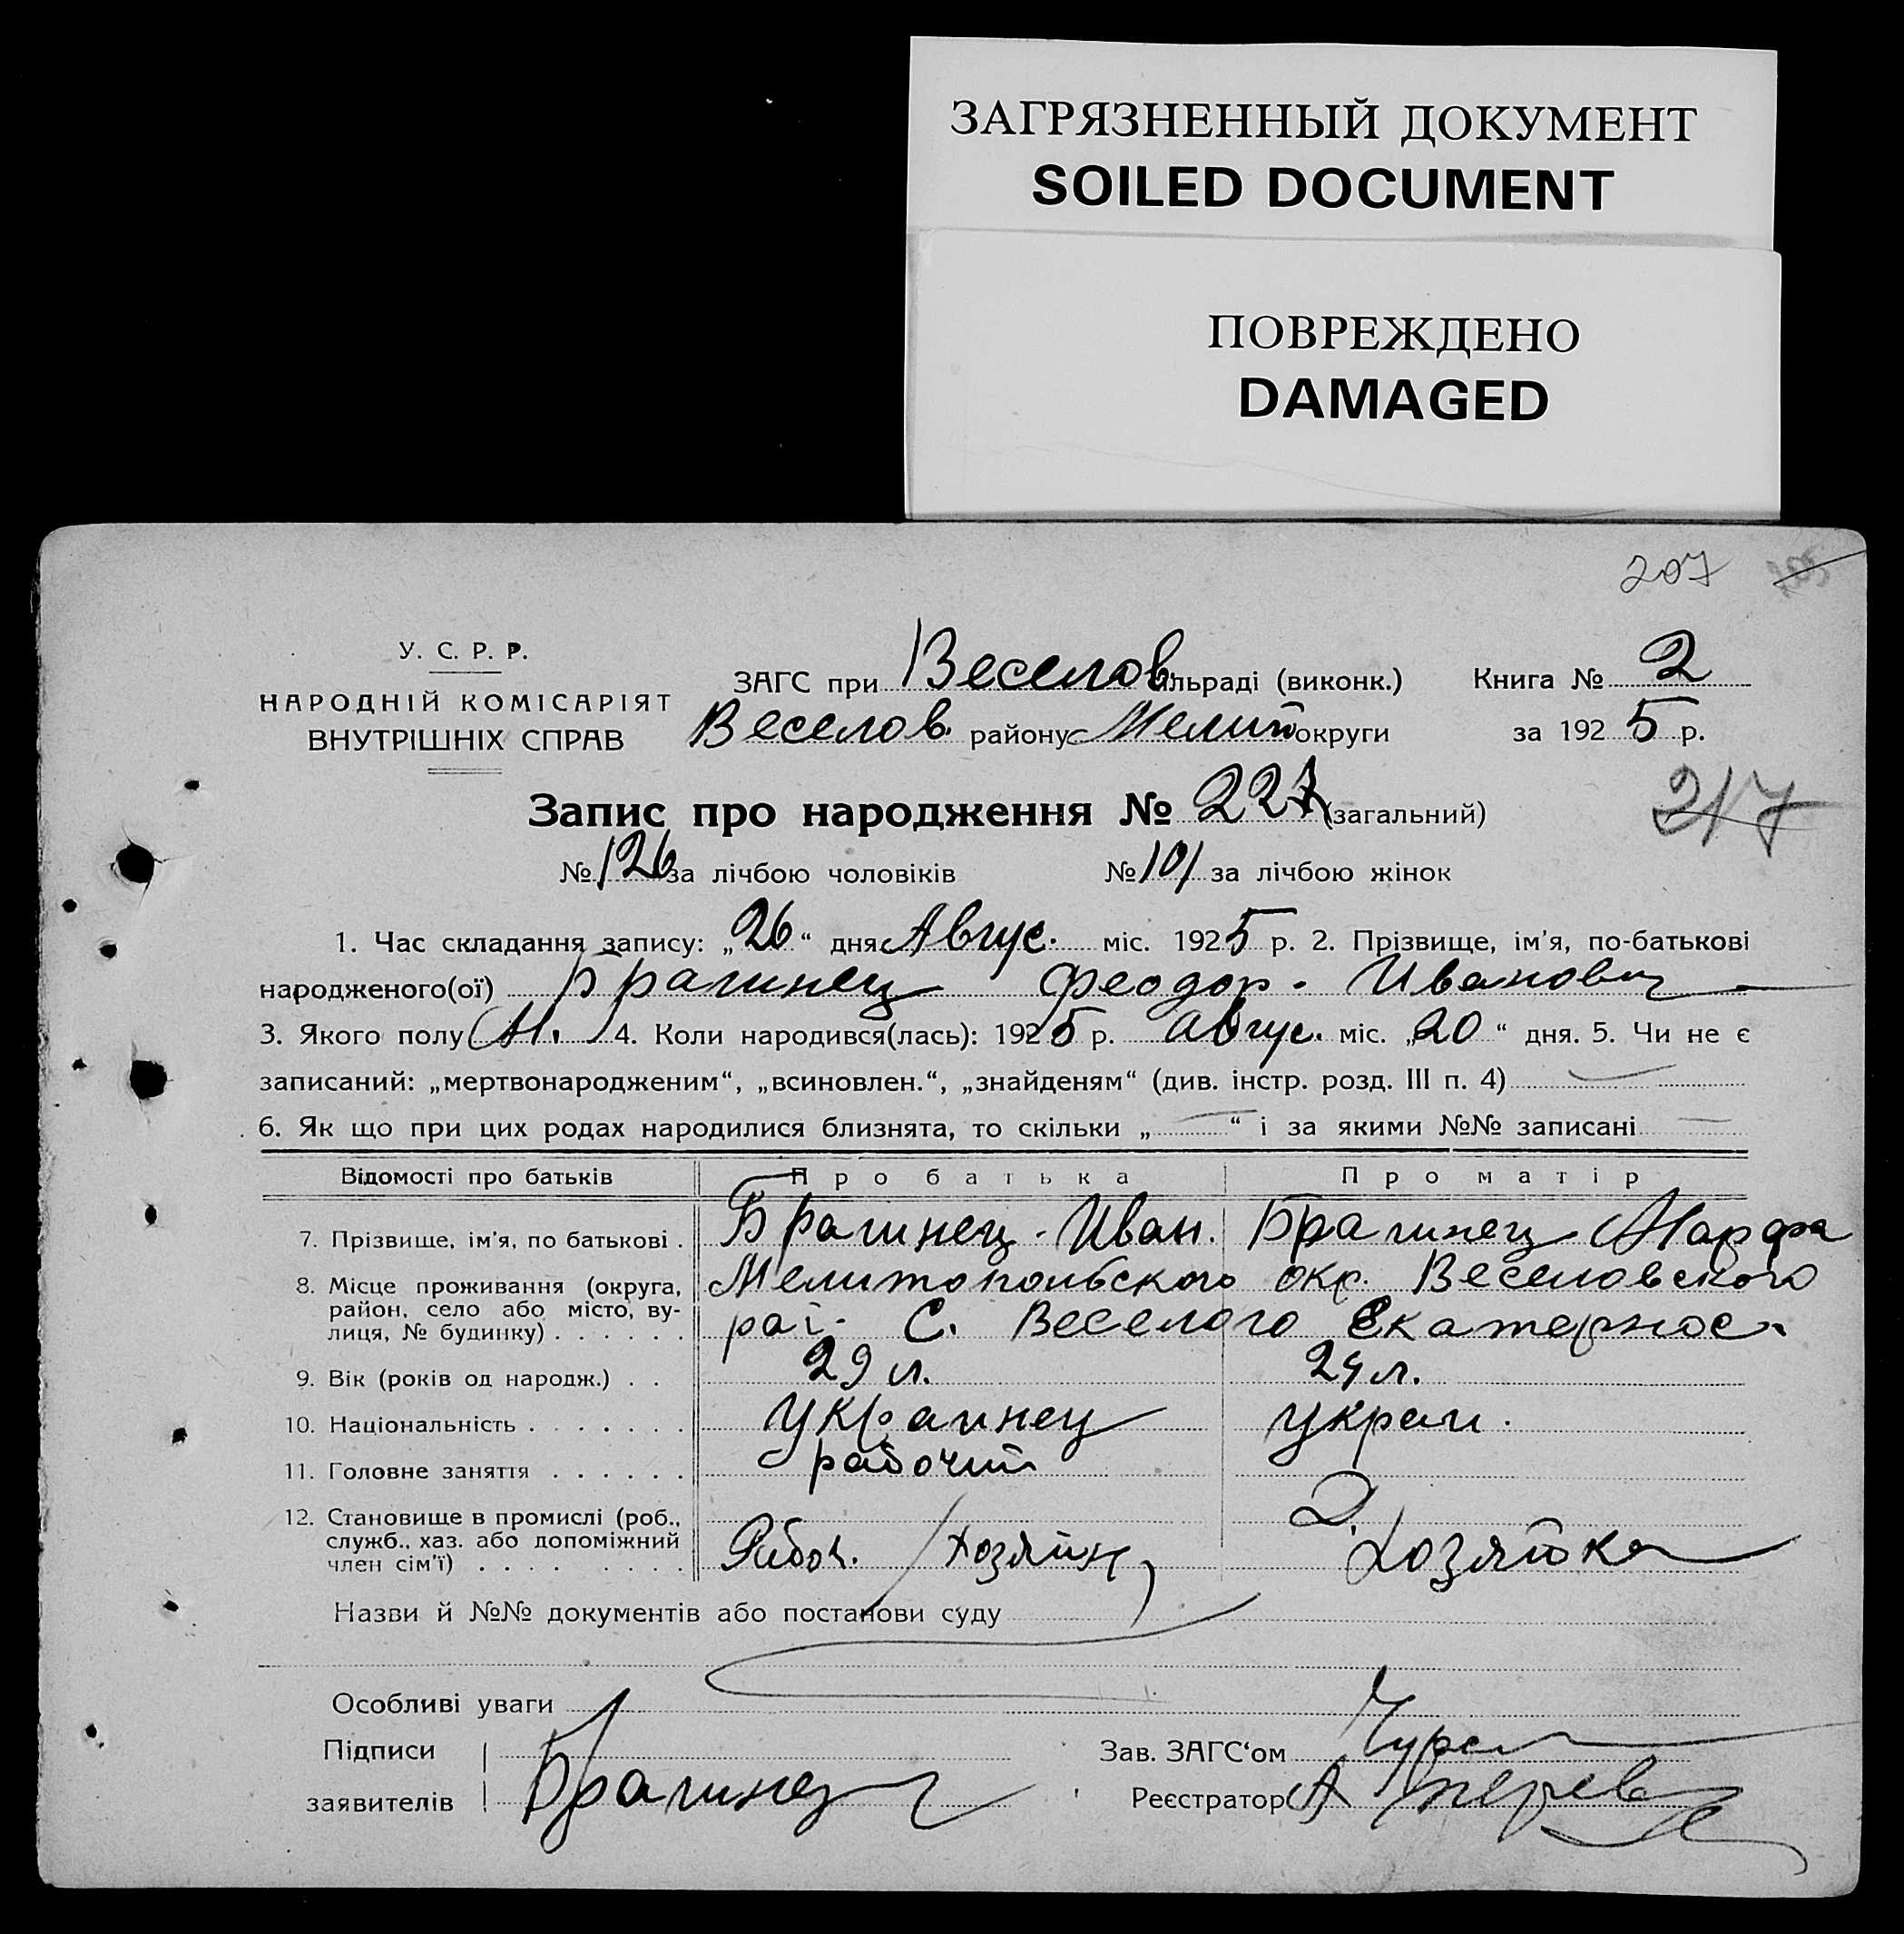 ЗАГРЯЗНЕННЫЙ ДОКУМЕНТ
SOILED DOCUMENT
ПОВРЕЖДЕНО
DAMAGED
207
У. С. Р. Р.
НАРОДНІЙ КОМІСАРІЯТ
ВНУТРІШНІХ СПРАВ
ЗАГС при Веселов. ільраді (виконк.) Книга № 2
Веселов. району Мелит округи за 1925 р.
Запис про народження № 227 (загальний)
217
№ 126 за лічбою чоловіків № 101 за лічбою жінок
1. Час складання запису: „26“ дня Авгус. міс. 1925 р. 2. Прізвище, ім'я, по-батькові
народженого(ої) Брагинец Феодор. Иванович
3. Якого полу М. 4. Коли народився(лась): 1925 р. Авгус. міс. „20“ дня. 5. Чи не є
записаний: „мертвонародженим“, „всиновлен.“, „знайденям“ (див. інстр. розд. III п. 4)
6. Як що при цих родах народилися близнята, то скільки „ — “ і за якими №№ записані —
Відомості про батьків Про батька Про матір
7. Прізвище, ім'я, по батькові . Брагинец - Иван. Брагинец Марфа
8. Місце проживання (округа, район, село або місто, вулиця, № будинку) . . . . . . Мелитопольского окр. Веселовского
рай. С. Веселого Екатернос.
9. Вік (років од народж.) . . 29 л. 24 л.
10. Національність . . . . . . . Украинец украи.
11. Головне заняття . . . . . . рабочий
12. Становище в промислі (роб., служб., хаз. або допоміжний член сім'ї) . . . . . . . . Рабоч. / Хозяин Д. Хозяйка
Назви й №№ документів або постанови суду
Особливі уваги
Підписи
заявителів Брагинец
Зав. ЗАГС'ом
Реєстратор А